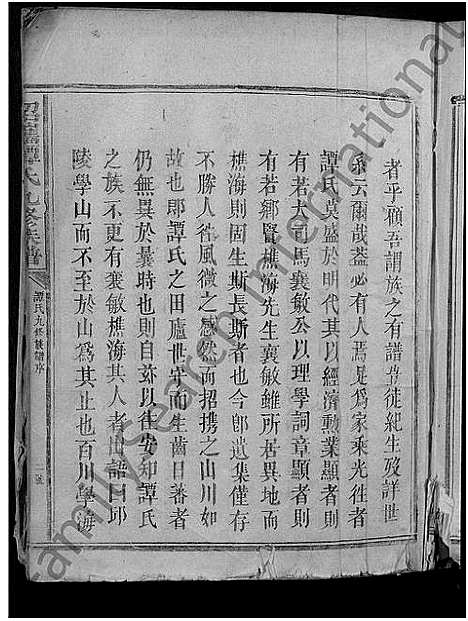 者乎顧吾謂族之有譜豈徒紀生歿詳世
系云爾哉葢必有人焉足為家乘光徃者
譚氏莫盛於明代其以經濟勳業顯者則
有若大司馬襄敏公以理學詞章顯者則
有若鄉賢樵海先生襄敏雖所居異地而
樵海則固生斯長斯者也今郎遺集僅存
不勝人徃風微之感然而招携之山川如
故也郎譚氏之田廬世守而生齒日蕃者
仍無異於曩時也則自兹以徃安知譚氏
之族不更有襄敏樵海其人者出語曰邱
陵學山而不至於山為其止也百川學海
譚氏九修族譜
譚氏九修族譜序
Family Search International